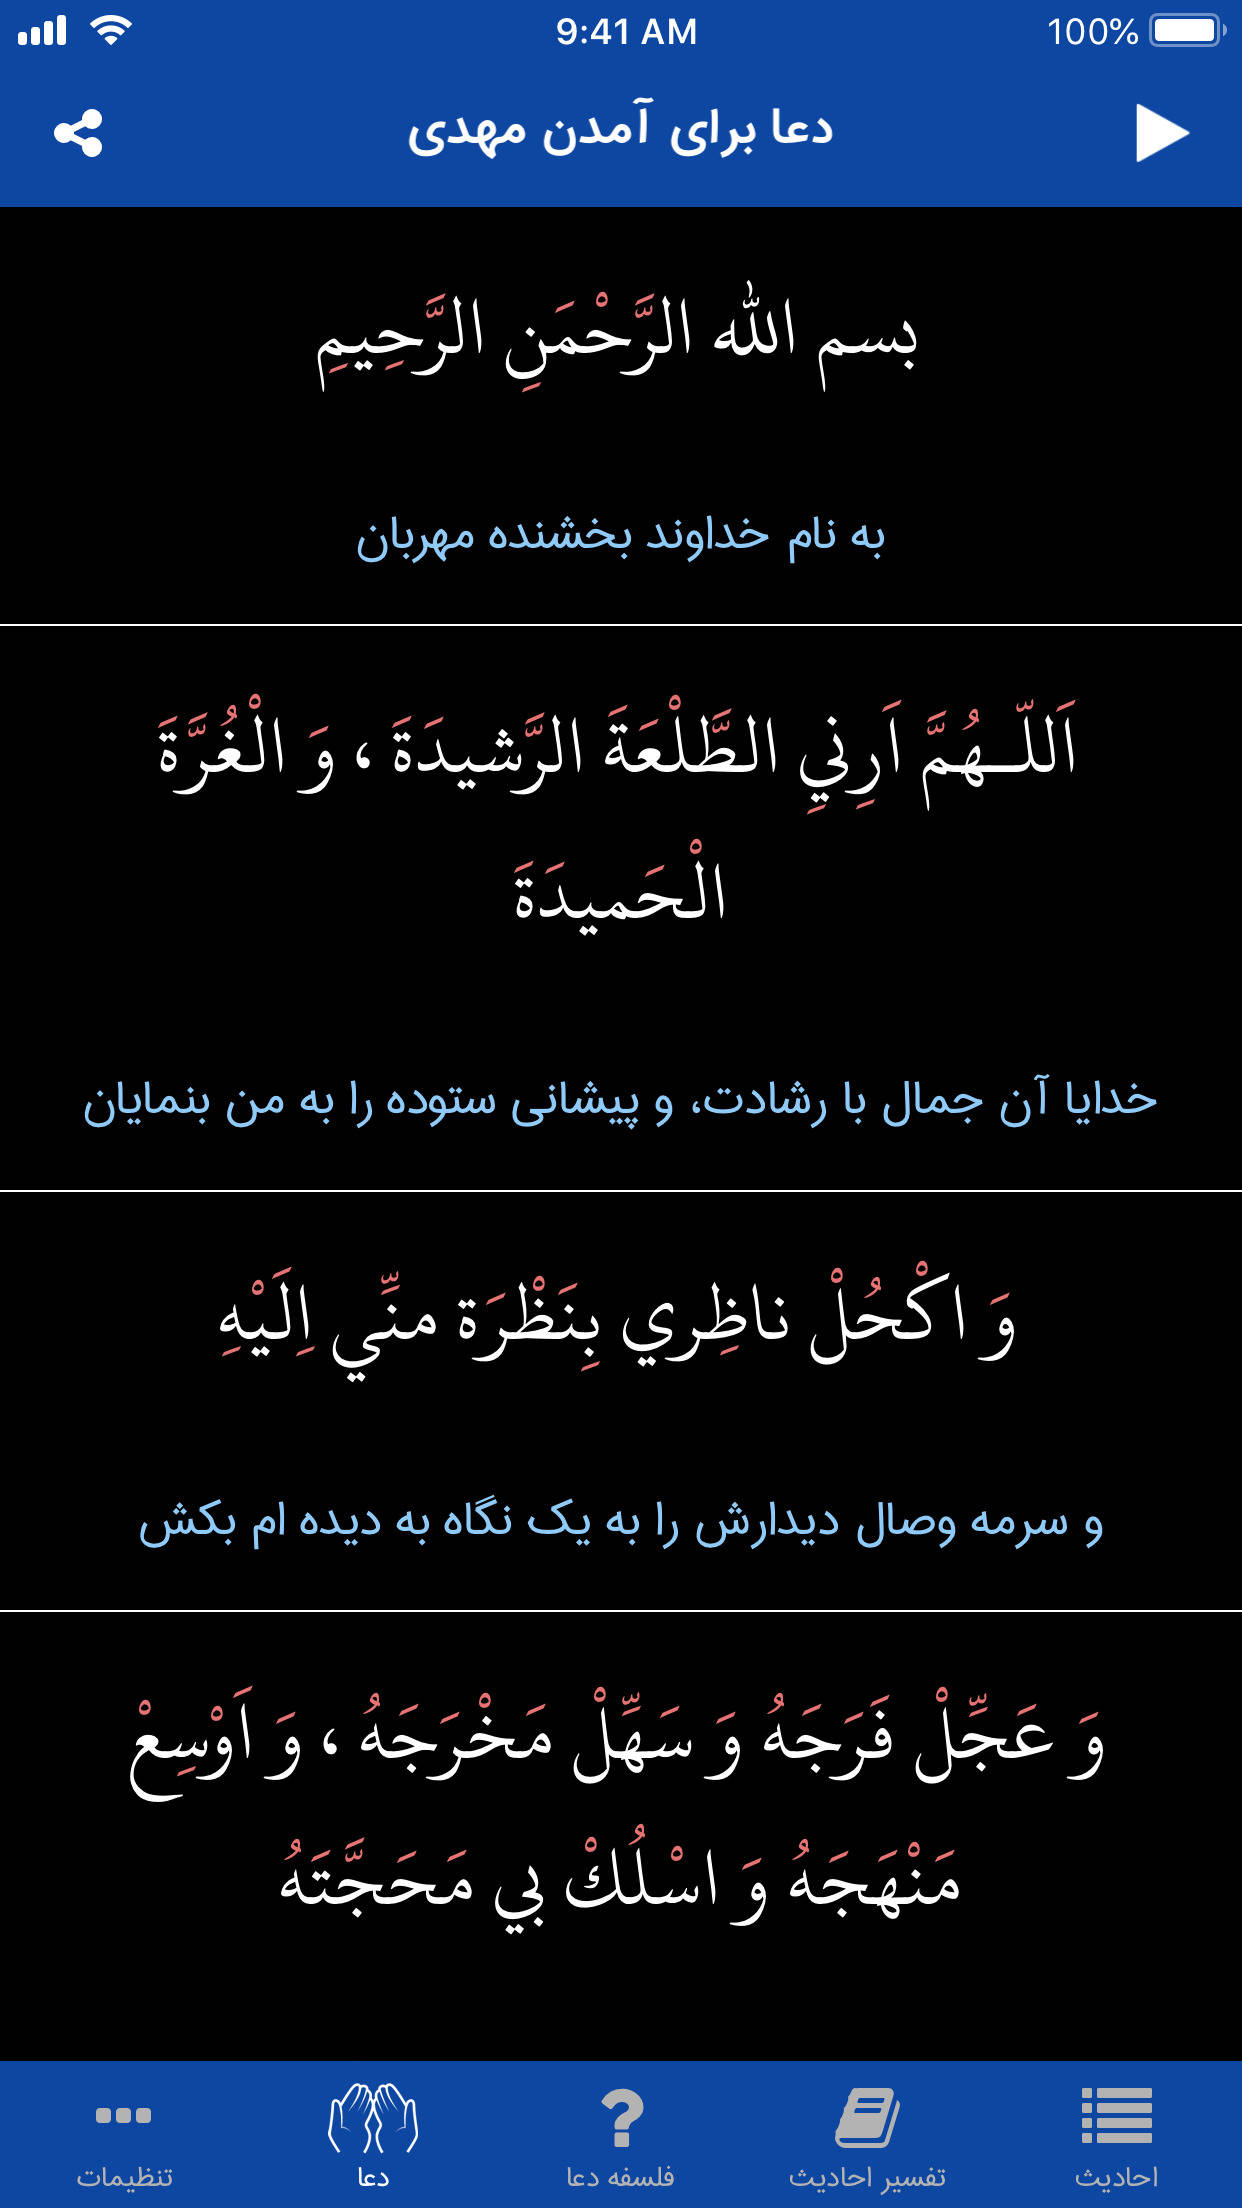 9:41 AM
100%
دعا برای آمدن مهدی
بسم الله الرَّحْمَنِ الرَّحِيمِ
به نام خداوند بخشنده مهربان
اَللّـهُمَّ اَرِنيِ الطَّلْعَةَ الرَّشيدَةَ ، وَ الْغُرَّةَ
الْحَميدَةَ
خدایا آن جمال با رشادت، و پیشانی ستوده را به من بنمایان
وَ اكْحُلْ ناظِري بِنَظْرَة منِّي اِلَيْهِ
و سرمه وصال دیدارش را به یک نگاه به دیده ام بکش
وَ عَجِّلْ فَرَجَهُ وَ سَهِّلْ مَخْرَجَهُ ، وَ اَوْسِعْ
مَنْهَجَهُ وَ اسْلُكْ بي مَحَجَّتَهُ
احادیث
تفسیر احادیث
فلسفه دعا
دعا
تنظیمات